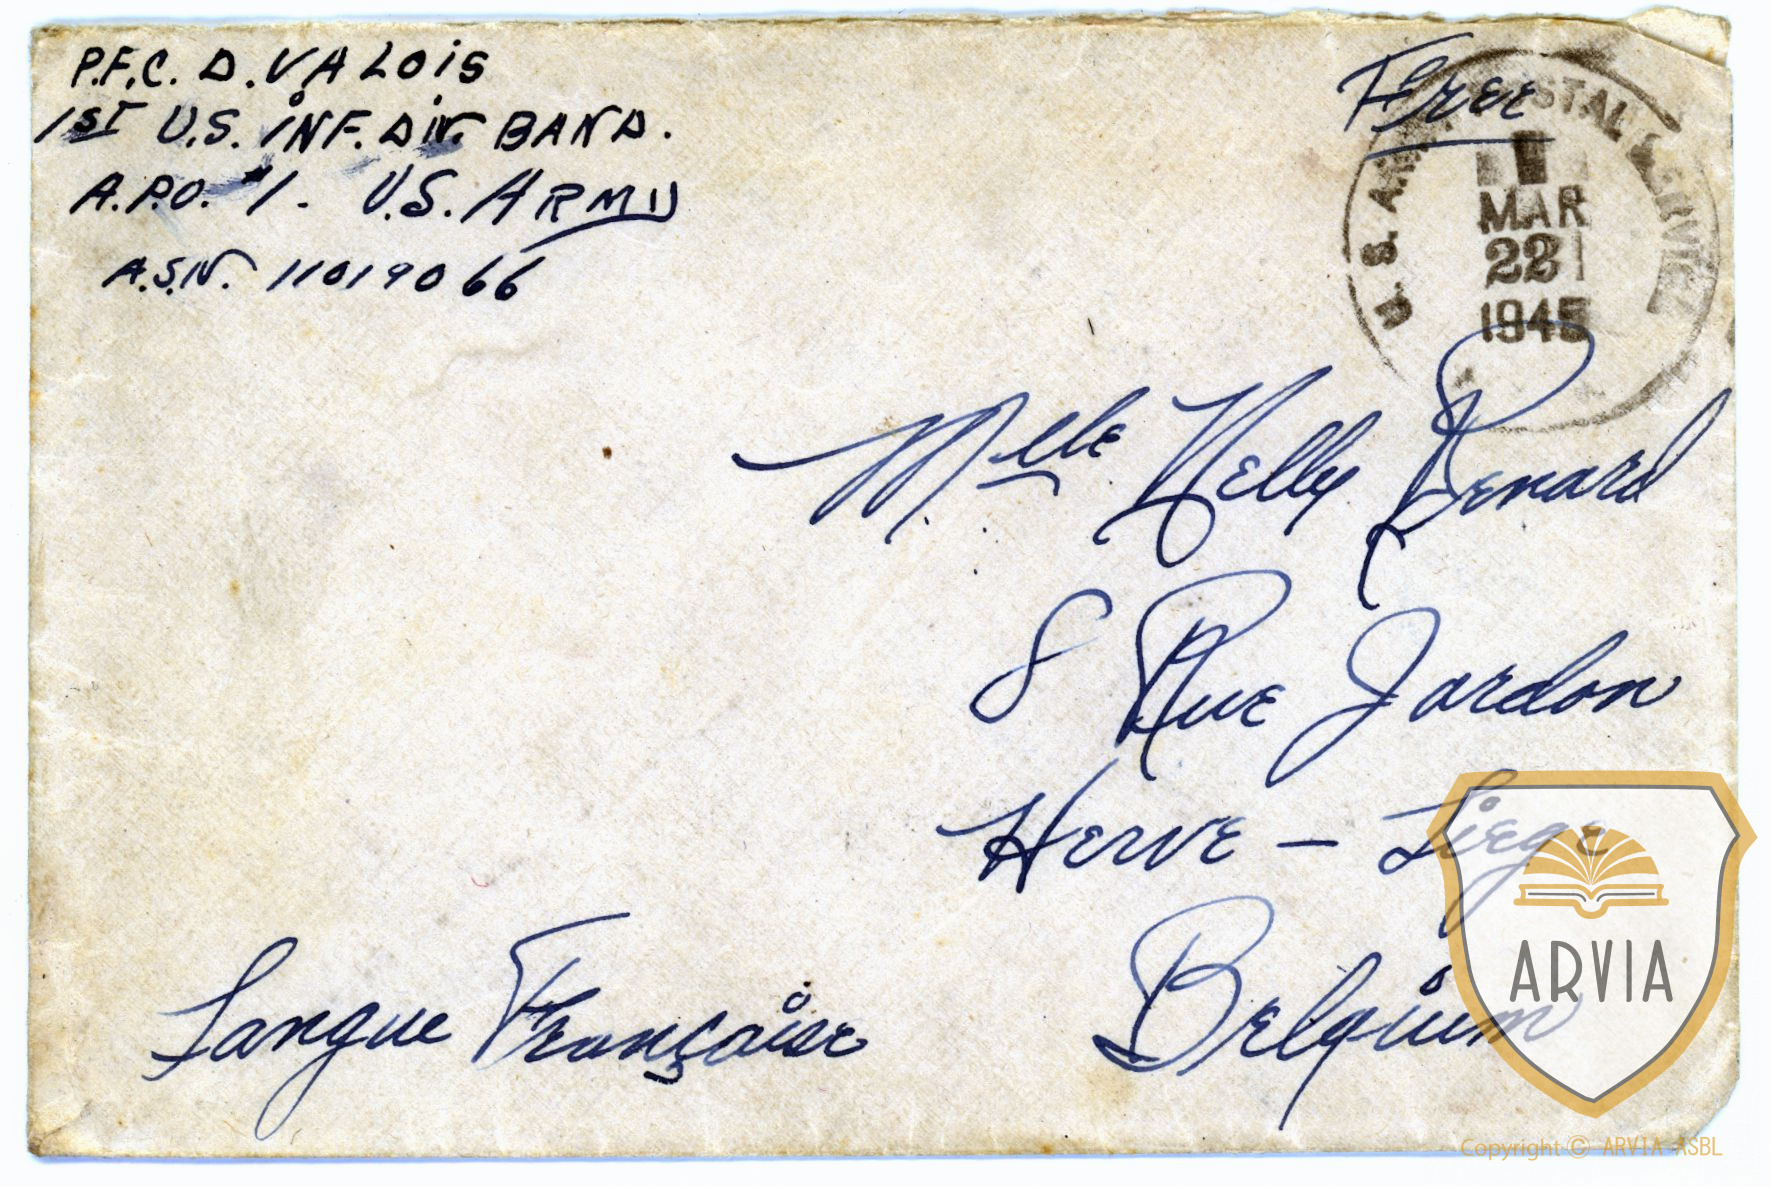 P.F.C. D. VALOIS
1ST U.S. INF. DIV. BAND.
A.P.O. #1. U.S. ARMY
A.S.N. 11019066
Free
U.S. ARMY POSTAL SERVICE
MAR
22
1945
Mlle Nelly Renard
8 Rue Jardon
Herve - Liege
Belgium
Langue Française
ARVIA
Copyright © ARVIA ASBL